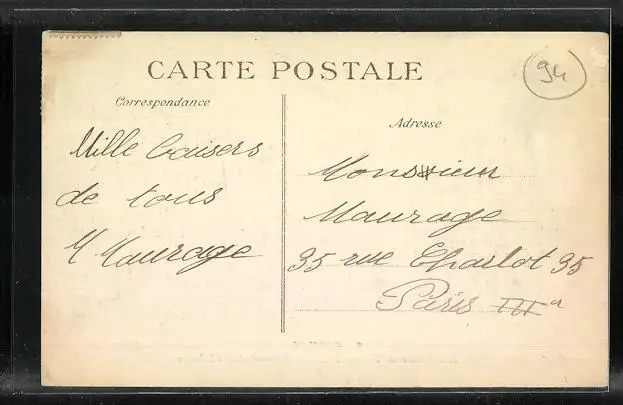 CARTE POSTALE
94
Correspondance
Adresse
Mille baisers
de tous
M Maurage
Monsieur
Maurage
35 rue Charlot 35
Paris III e